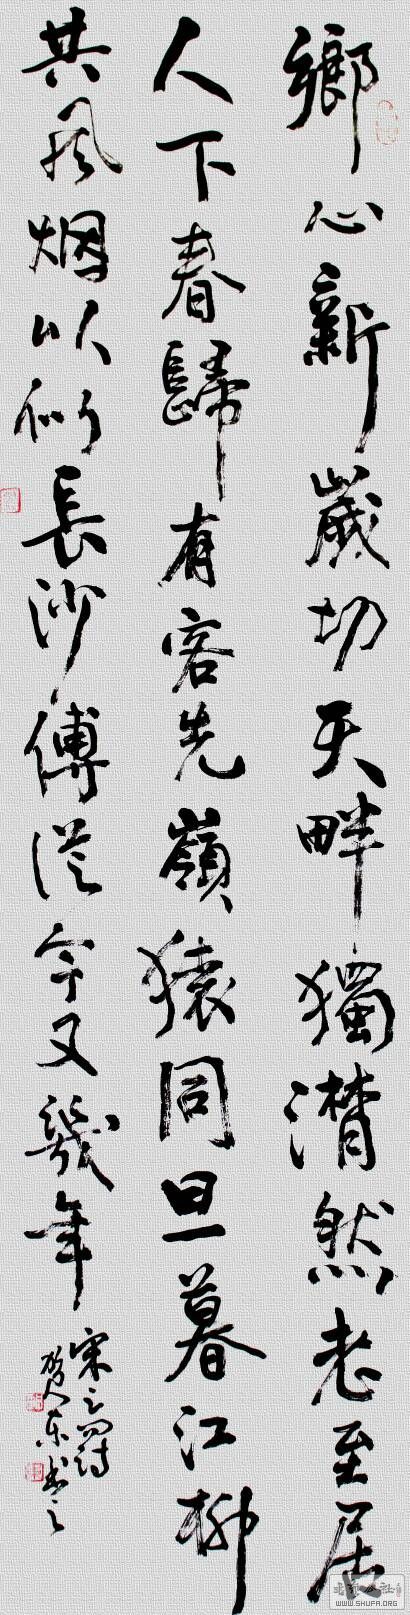 鄉心新歲切天畔獨潸然老至居
人下春歸有客先嶺猿同旦暮江柳
共風烟以似長沙傅從今又幾年
宋之问詩
東書之
WWW.SHUFA.ORG